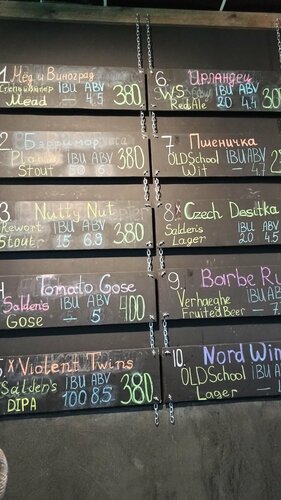 1. Мёд и Виноград
IBU ABV
Mead — 4.5 380
2
Stout 380
3 Nutty Nut
Rewort IBU ABV
Stout 15 6.9 380
Tomato Gose
Salden's IBU ABV
Gose — 5 400
5 x Violent Twins
Salden's IBU ABV
DIPA 100 8.5 380
6. Ирландец
WS IBU ABV
Red Ale 20 4.4
7. Пшеничка
OLD School IBU ABV
Wit — 4.7
8 x Czech Desitka
Salden's IBU ABV
Lager 20 4.5
9. Barbe Ru
Verhaeghe IBU AB
Fruited Beer — 7
10. Nord Win
OLD School IBU A
Lager —